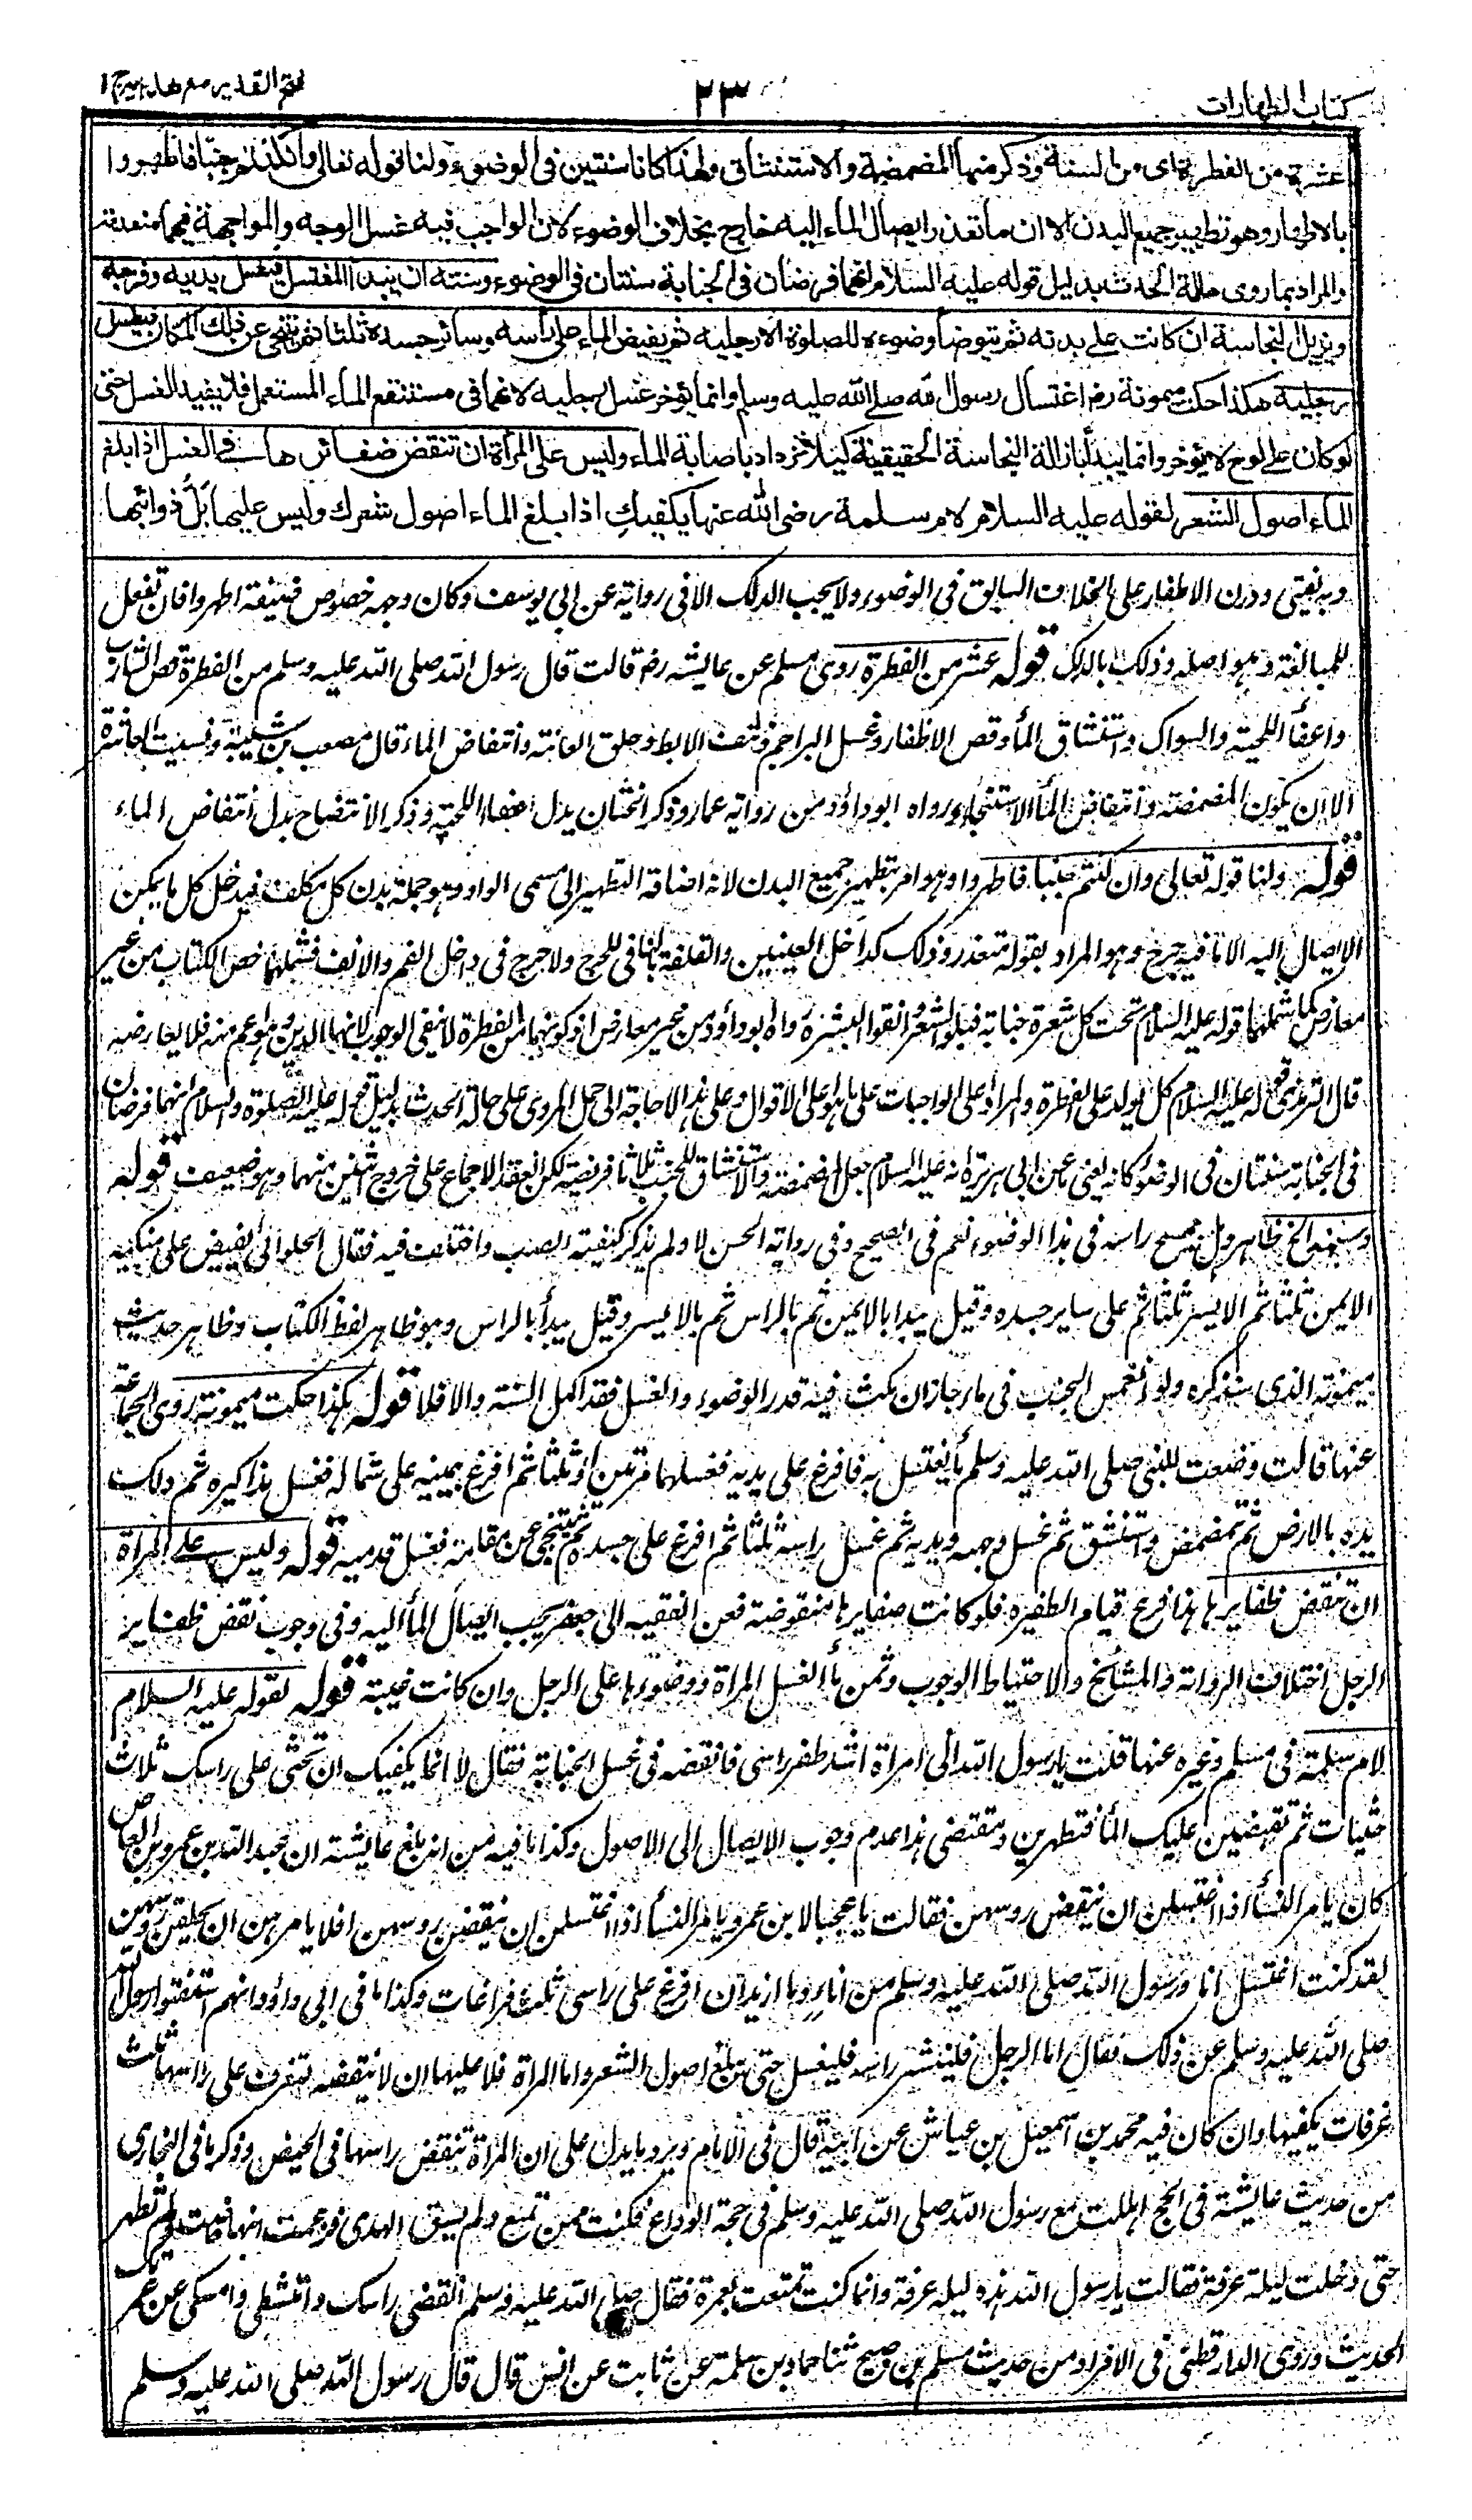 كتاب الطهارات
٢٣
فتح القدير مع هدايه ج ١
عشرة من الفطرة اى من السنة وذكر منها المضمضة والاستنشاق ولهذا كانا سنتين فى الوضوء ولنا قوله تعالى وان كنتم جنبا فاطهروا
بالاطهار وهو تطهير جميع البدن الا ان ما تعذر ايصال الماء اليه خارج بخلاف الوضوء لان الواجب فيه غسل الوجه والمواجهة فيهما منعدمة
والمراد بما روى حالة الحدث بدليل قوله عليه السلام انهما فرضان فى الجنابة سنتان فى الوضوء وسنته ان يبدأ المغتسل فيغسل يديه وفرجه
ويزيل النجاسة ان كانت على بدنه ثم يتوضأ وضوءه للصلوة الا رجليه ثم يفيض الماء على رأسه وسائر جسده ثلثا ثم يتنحى عن ذلك المكان فيغسل
رجليه هكذا حكت ميمونة رض اغتسال رسول الله صلى الله عليه وسلم وانما يؤخر غسل رجليه لانهما فى مستنقع الماء المستعمل فلا يفيد الغسل حتى
لو كان على لوح لا يؤخر وانما يبدأ بازالة النجاسة الحقيقية كيلا تزداد باصابة الماء وليس على المرأة ان تنقض ضفائرها فى الغسل اذا بلغ
الماء اصول الشعر لقوله عليه السلام لام سلمة رضى الله عنها يكفيك اذا بلغ الماء اصول شعرك وليس عليها بلّ ذوائبها
وبه يفتى ودرن الاظفار على الخلاف السابق فى الوضوء ولا يجب الدلك الا فى رواية عن ابى يوسف وكان وجهه خصوص صيغة اطهروا فان تفعل
للمبالغة وهو اصله وذلك بالدلك قوله عشر من الفطرة روى مسلم عن عايشه رض قالت قال رسول الله صلى الله عليه وسلم من الفطرة قص الشارب
واعفأ اللحية والسواك واستنشاق المأ وقص الاظفار وغسل البراجم ونتف الابط وحلق العانة وانتفاض الماء قال مصعب بن شيبة ونسيت العاشرة
الا ان يكون المضمضة وانتفاض المأ الاستنجاء ورواه ابو داؤد من رواية عمار وذكر الختان بدل اعفاء اللحية وذكر الانتضاح بدل انتفاض الماء
قوله ولنا قوله تعالى وان كنتم جنبا فاطهروا وهو امر بتطهير جميع البدن لانه اضافة التطهير الى مسمى الواو وهو جملة بدن كل مكلف فيدخل كل ما يمكن
الايصال اليه الا ما فيه حرج وهو المراد بقوله تتعذر وذلك كداخل العينين والقلفة للنافى للحرج ولا حرج فى داخل الفم والانف فشملهما نص الكتاب من غير
معارض كما شملهما قوله عليه السلام تحت كل شعرة جنابة فبلوا الشعر وانقوا البشرة رواه ابو داؤد من غير معارض اذ كونهما من الفطرة لا ينفى الوجوب لانها الدين وهو اعم منه فلا يعارضه
قال الترمذى قوله عليه السلام كل يولد على الفطرة والمراد على الواجبات على ما هو اعلى الاقوال وعلى هذا لا حاجة الى حمل المروى على حالة الحدث بدليل قوله عليه الصلوة والسلام انهما فرضان
فى الجنابة سنتان فى الوضوء كانه يعنى ما عن ابى هريرة انه عليه السلام جعل المضمضة والاستنشاق للجنب ثلاثا فريضة لكن انعقد الاجماع على خروج اثنين منهما وهو ضعيف قوله
وسننه الخ ظاهر وهل يمسح راسه فى هذا الوضوء نعم فى الصحيح وفى رواية الحسن لا ولم يذكر كيفية الصب واختلف فيه فقال الحلوانى يفيض على منكبه
الايمن ثلثا ثم الايسر ثلثا ثم على ساير جسده وقيل يبدا بالايمن ثم بالراس ثم بالايسر وقيل يبدأ بالراس وهو ظاهر لفظ الكتاب وظاهر حديث
ميمونة الذى سنذكره ولو انغمس الجنب فى ماء جاز ان مكث فيه قدر الوضوء والغسل فقد اكمل السنة والا فلا قوله هكذا حكت ميمونة روى الجماعة
عنها قالت وضعت للنبى صلى الله عليه وسلم مأ يغتسل به فافرغ على يديه فغسلهما مرتين او ثلثا ثم افرغ بيمينه على شماله فغسل مذاكيره ثم دلك
يده بالارض ثم تمضمض واستنشق ثم غسل وجهه ويديه ثم غسل راسه ثلثا ثم افرغ على جسده ثم تنحى عن مقامه فغسل قدميه قوله وليس على المراة
ان تنقض ظفايرها هذا فرع قيام الظفيره فلو كانت ضفايرها منقوضة فعن الفقيه ابى جعفر يجب ايصال المأ اليه وفى وجوب نقض ظفاير
الرجل اختلاف الرواية والمشائخ والاحتياط الوجوب وثمن مأ الغسل المراة ووضوءها على الرجل وان كانت غنية قوله لقوله عليه السلام
لام سلمة فى مسلم وغيره عنها قلت يا رسول الله انى امراة اشد ظفر راسى فانقضه فى غسل الجنابة فقال لا انما يكفيك ان تحثى على راسك ثلاث
حثيات ثم تفيضين عليك المأ فتطهرين ومقتضى هذا عدم وجوب الايصال الى الاصول وكذا ما فيه من انه بلغ عايشة ان عبد الله بن عمرو بن العاص
كان يامر النسأ اذا اغتسلن ان ينقضن روسهن فقالت يا عجبا لابن عمرو يامر النسأ اذا اغتسلن ان ينقضن روسهن افلا يامرهن ان يحلقن روسهن
لقد كنت اغتسل انا ورسول الله صلى الله عليه وسلم من اناء وما ازيد ان افرغ على راسى ثلث فراغات وكذا ما فى ابى داؤد انهم استفتوا رسول الله
صلى الله عليه وسلم عن ذلك فقال اما الرجل فلينشر راسه فليغسل حتى يبلغ اصول الشعر واما المراة فلا عليها ان لا تنقضه لتغرف على راسها ثلث
غرفات يكفيها وان كان فيه محمد بن اسمعيل بن عياش عن ابيه قال فى الامام ويرد ما يدل على ان المراة تنقض راسها فى الحيض وذكر ما فى البخارى
من حديث عايشة فى الحج اهللت مع رسول الله صلى الله عليه وسلم فى حجة الوداع فكنت ممن تمتع ولم يسق الهدى فزعمت انها حاضت ولم تطهر
حتى دخلت ليلة عرفة فقالت يا رسول الله هذه ليلة عرفة وانما كنت تمتعت بعمرة فقال صلى الله عليه وسلم انقضى راسك وامتشطى وامسكى عن عمرتك
الحديث وروى الدارقطنى فى الافراد من حديث مسلم بن صبيح ثنا حماد بن سلمة عن ثابت عن انس قال قال رسول الله صلى الله عليه وسلم